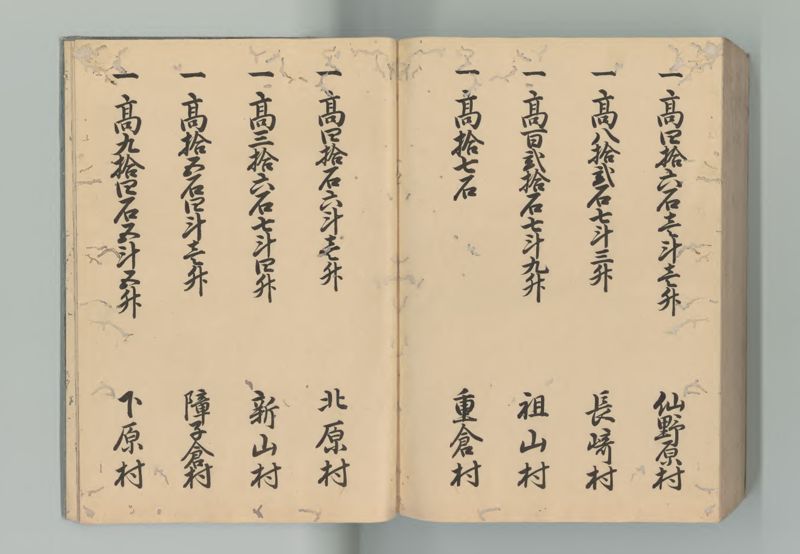 一 高四拾六石壱斗壱升 仙野原村
一 高八拾弐石七斗三升 長崎村
一 高百弐拾石七斗九升 祖山村
一 高拾七石 重倉村
一 高四拾石六斗壱升 北原村
一 高三拾六石七斗四升 新山村
一 高拾五石四斗壱升 障子倉村
一 高九拾四石五斗五升 下原村